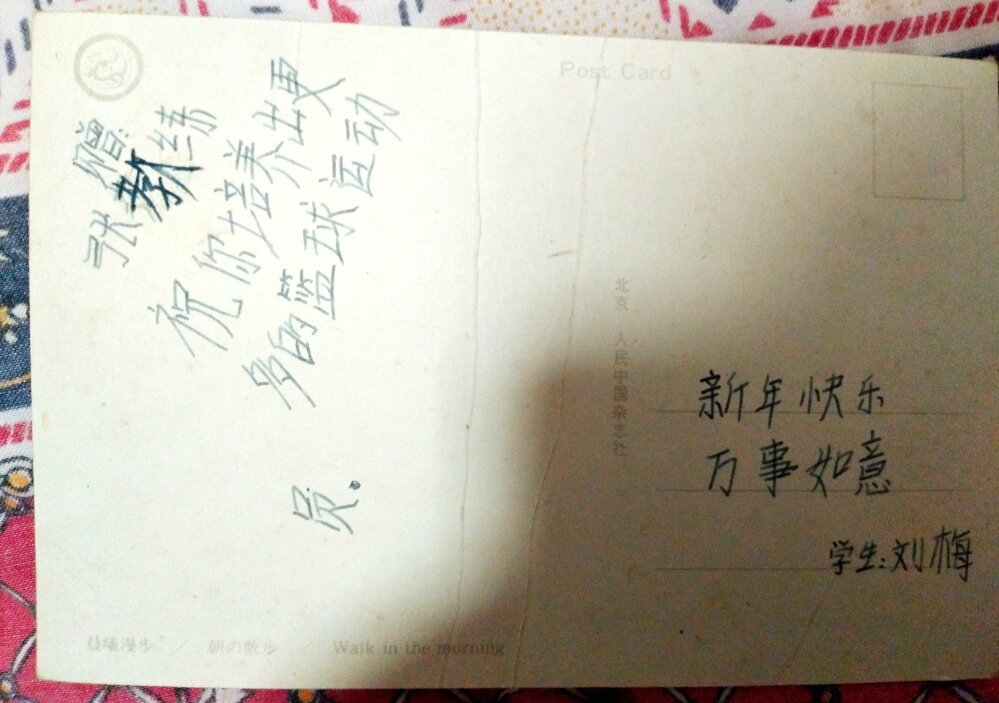 Post Card
赠:
张教练
祝你培养出更
多的篮球运动
员.
北京 人民中国杂志社
新年快乐
万事如意
学生:刘梅
晨曦漫步 / 朝の散歩 / Walk in the morning